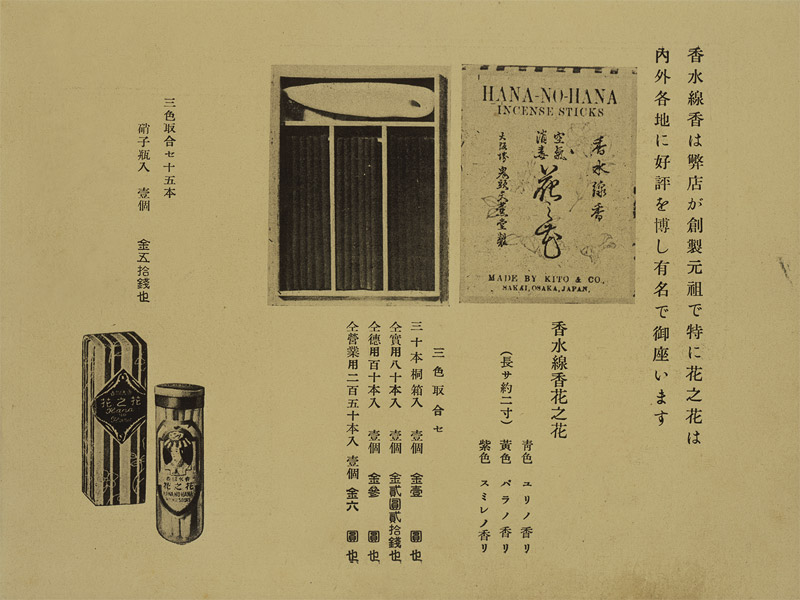 香水線香は弊店が創製元祖で特に花之花は
內外各地に好評を博し有名で御座います
HANA-NO-HANA
INCENSE STICKS
香水線香
空氣
消毒
花之花
MADE BY KITO & CO.,
SAKAI, OSAKA, JAPAN.
香水線香花之花
(長サ約二寸)
靑色 ユリノ香リ
黃色 バラノ香リ
紫色 スミレノ香リ
三色取合セ
三十本桐箱入 壹個 金壹圓也
仝實用八十本入 壹個 金貳圓貳拾錢也
仝德用百十本入 壹個 金參圓也
仝營業用二百五十本入 壹個 金六圓也
三色取合セ十五本
硝子瓶入 壹個 金五拾錢也
花之花
Hana
Hana
花之花
HANA-NO-HANA